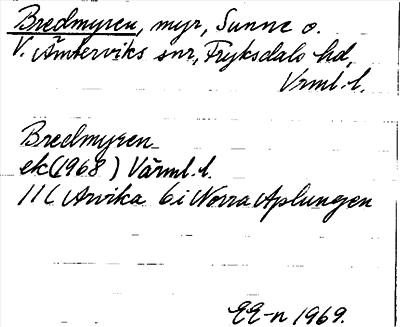 Bredmyren, myr, Sunne o.
V. Ämterviks snr, Fryksdals hd,
Vrml. l.
Bredmyren
ek (1968) Värml. l.
11 C Arvika 6 i Norra Aplungen
EE-n 1969.